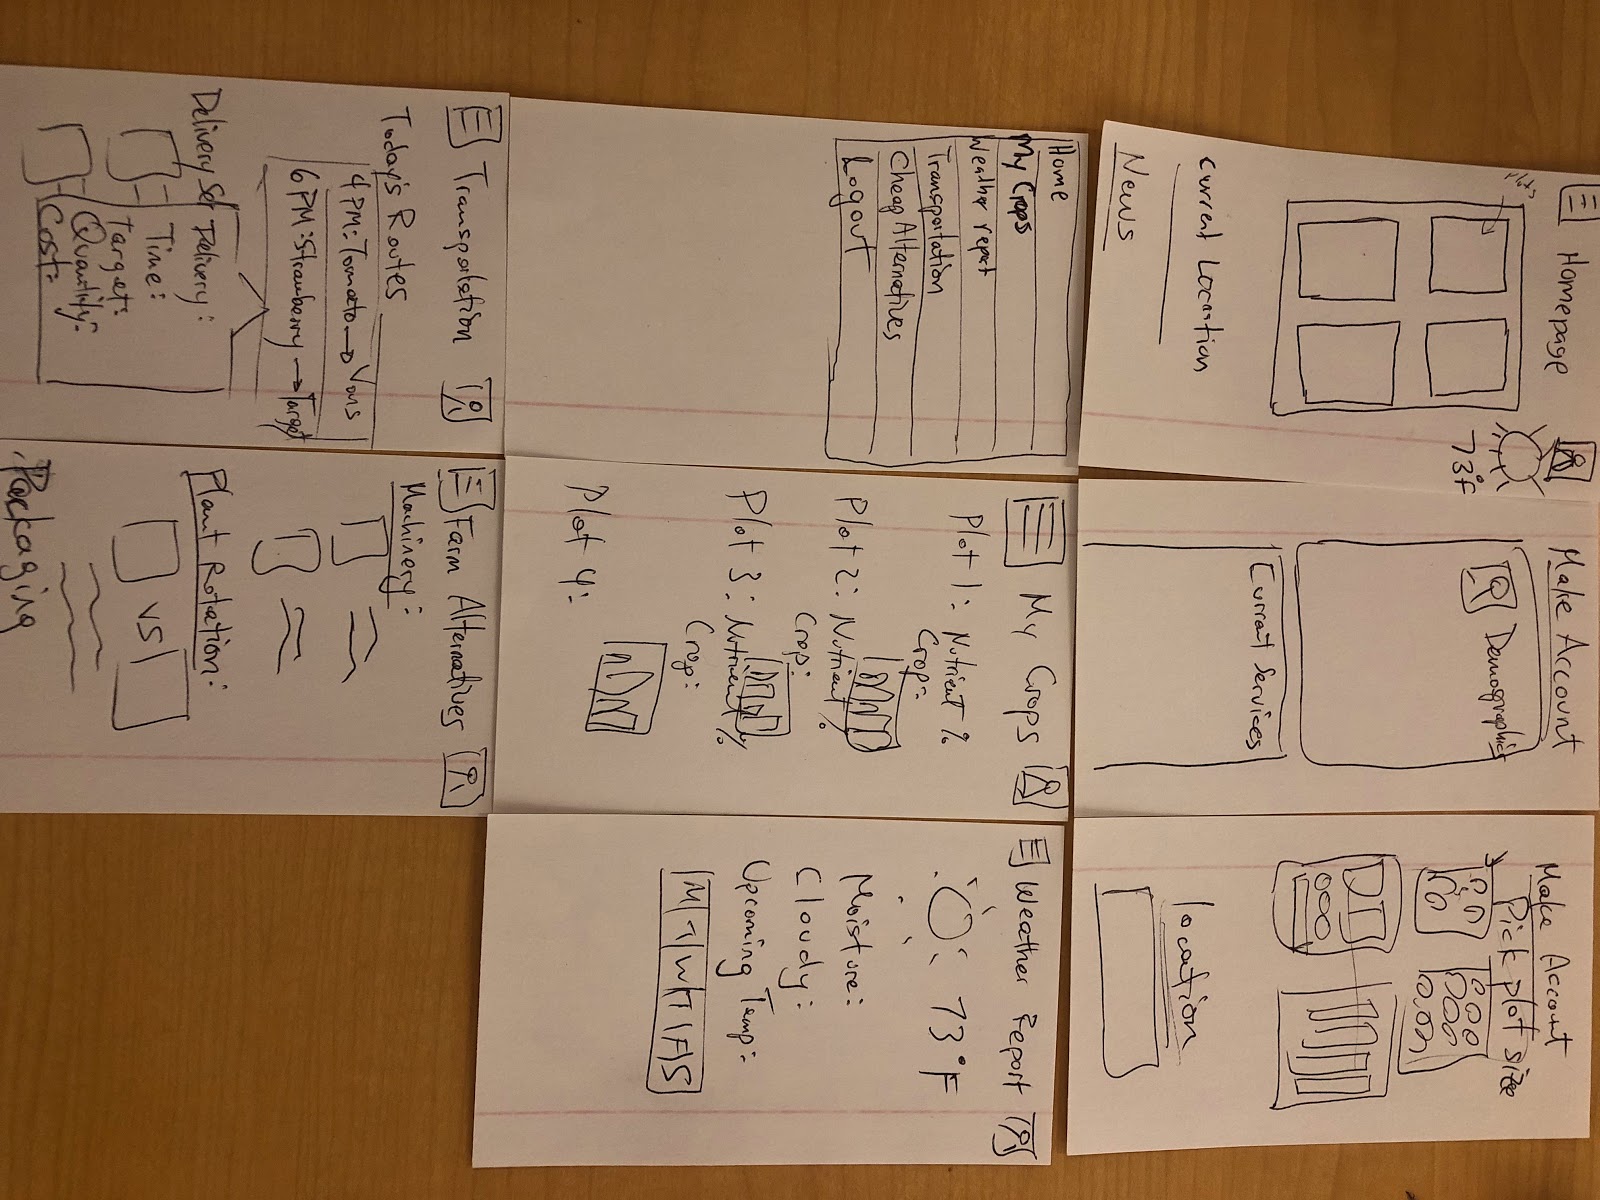 Homepage
Plots
73°F
Current Location
News
Make Account
Demographics
Current Services
Make Account
Pick plot size
location
Home
My Crops
Weather report
Transportation
Cheap Alternatives
Logout
My Crops
Plot 1: Nutrient %
Crop:
Plot 2: Nutrient %
Crop:
Plot 3: Nutrient %
Crop:
Plot 4:
Weather Report
73°F
Moisture:
Cloudy:
Upcoming Temp:
M T W T F S
Transportation
Today's Routes
4 PM: Tomato → Vons
6 PM: Strawberry → Target
Delivery
Delivery:
Time:
Target:
Quantity:
Cost:
Farm Alternatives
Machinery:
Plant Rotation:
VS
Packaging